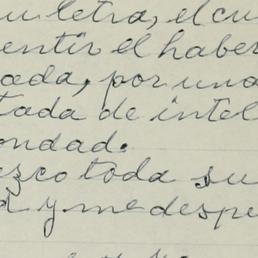 u letra, el cu
entir el haber
ada, por una
tada de intel
ondad.
ezco toda su
y me despe